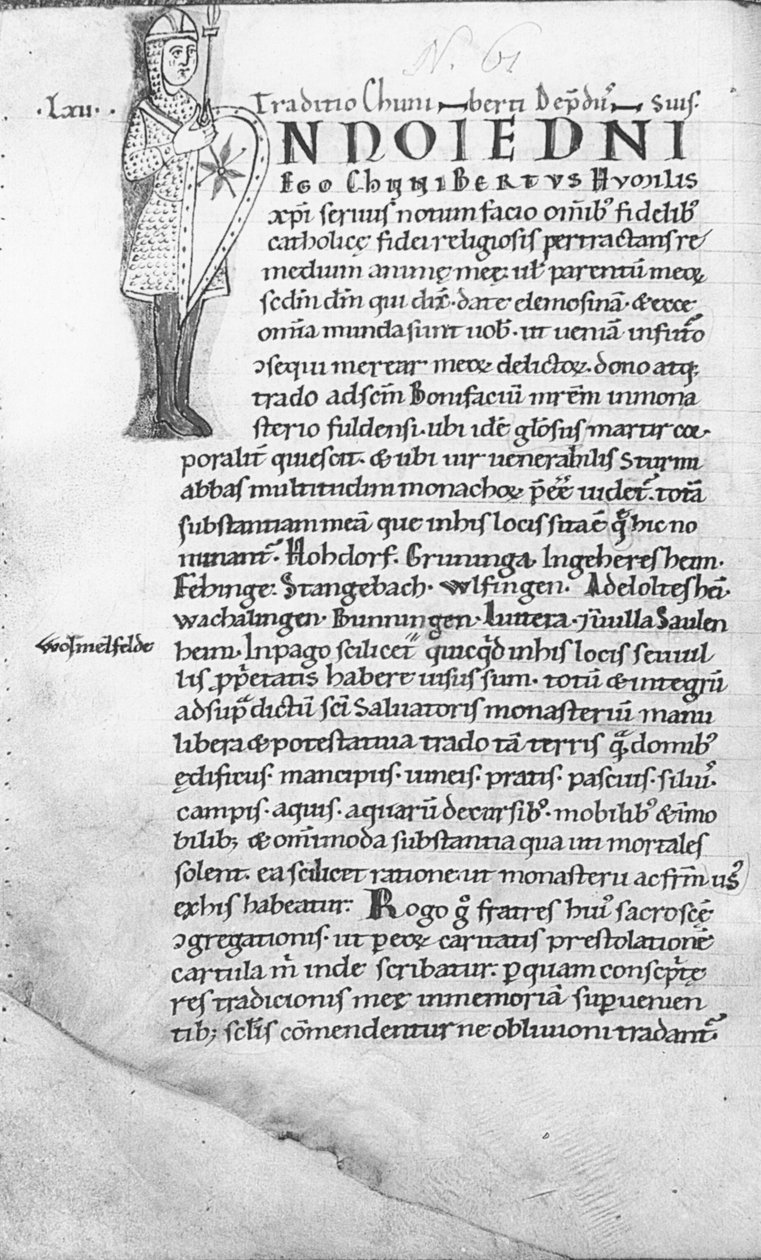 N. 61
·Lxii· Traditio Chuniberti De p̄diis suis.
N NOIE DNI
EGO ChuniBERTVS Humilis
xp̄i seruus notum facio om̄ib⁹ fidelib⁹
catholicę fidei religiosis pertractans re
medium animę meę ul̄ parentū meoꝝ
scd̄m dn̄m qui dix̄· date elemosinā· & ecce
om̄ia munda sunt uob̄· ut ueniā in fut̄o
ↄsequi merear meoꝝ delictoꝝ. dono atq;
trado ad sc̄m Bonifaciū mr̄em in mona
sterio fuldensi· ubi idē gl̄osus martir cor
poralit̄ quiescit· & ubi uir uenerabilis Sturmi
abbas multitudini monachoꝝ p̄eē uidet᷑· totā
substantiam meā que in his locis sita ē q̄ hic no
minant᷑· Hohdorf. Gruninga. Ingeheresheim·
Febinge· Stangebach· wlfingen· Adelolteshei·
wachalingen· Bunningen· Luttera· in uilla Saulen
wolmelfelde
heim· In pago scilicet quicq̄d in his locis seu uil
lis p̱p̱etatis habere uisus sum· totū & integrū
ad sup̄dictū sc̄i Saluatoris monasteriū manu
libera & potestatiua trado tā terris q̄ domib⁹
ędificiis· mancipiis· uineis· pratis· pascuis· siluis·
campis· aquis· aquarū decursib⁹· mobilib⁹ & īmo
bilib; & om̄imoda substantia qua uti mortales
solent· ea scilicet ratione ut monasterii ac fr̄m us⁹
ex his habeatur· Rogo g̊ fratres hui⁹ sacroscē
ↄgregationis· ut p̱ eoꝝ caritatis prestolationē
cartula m̄ inde scribatur· p̱ quam conscp̄tę
res tradicionis meę in memoriā superuenien
tib; sc̄lis cōmendentur ne obliuioni tradant᷑·